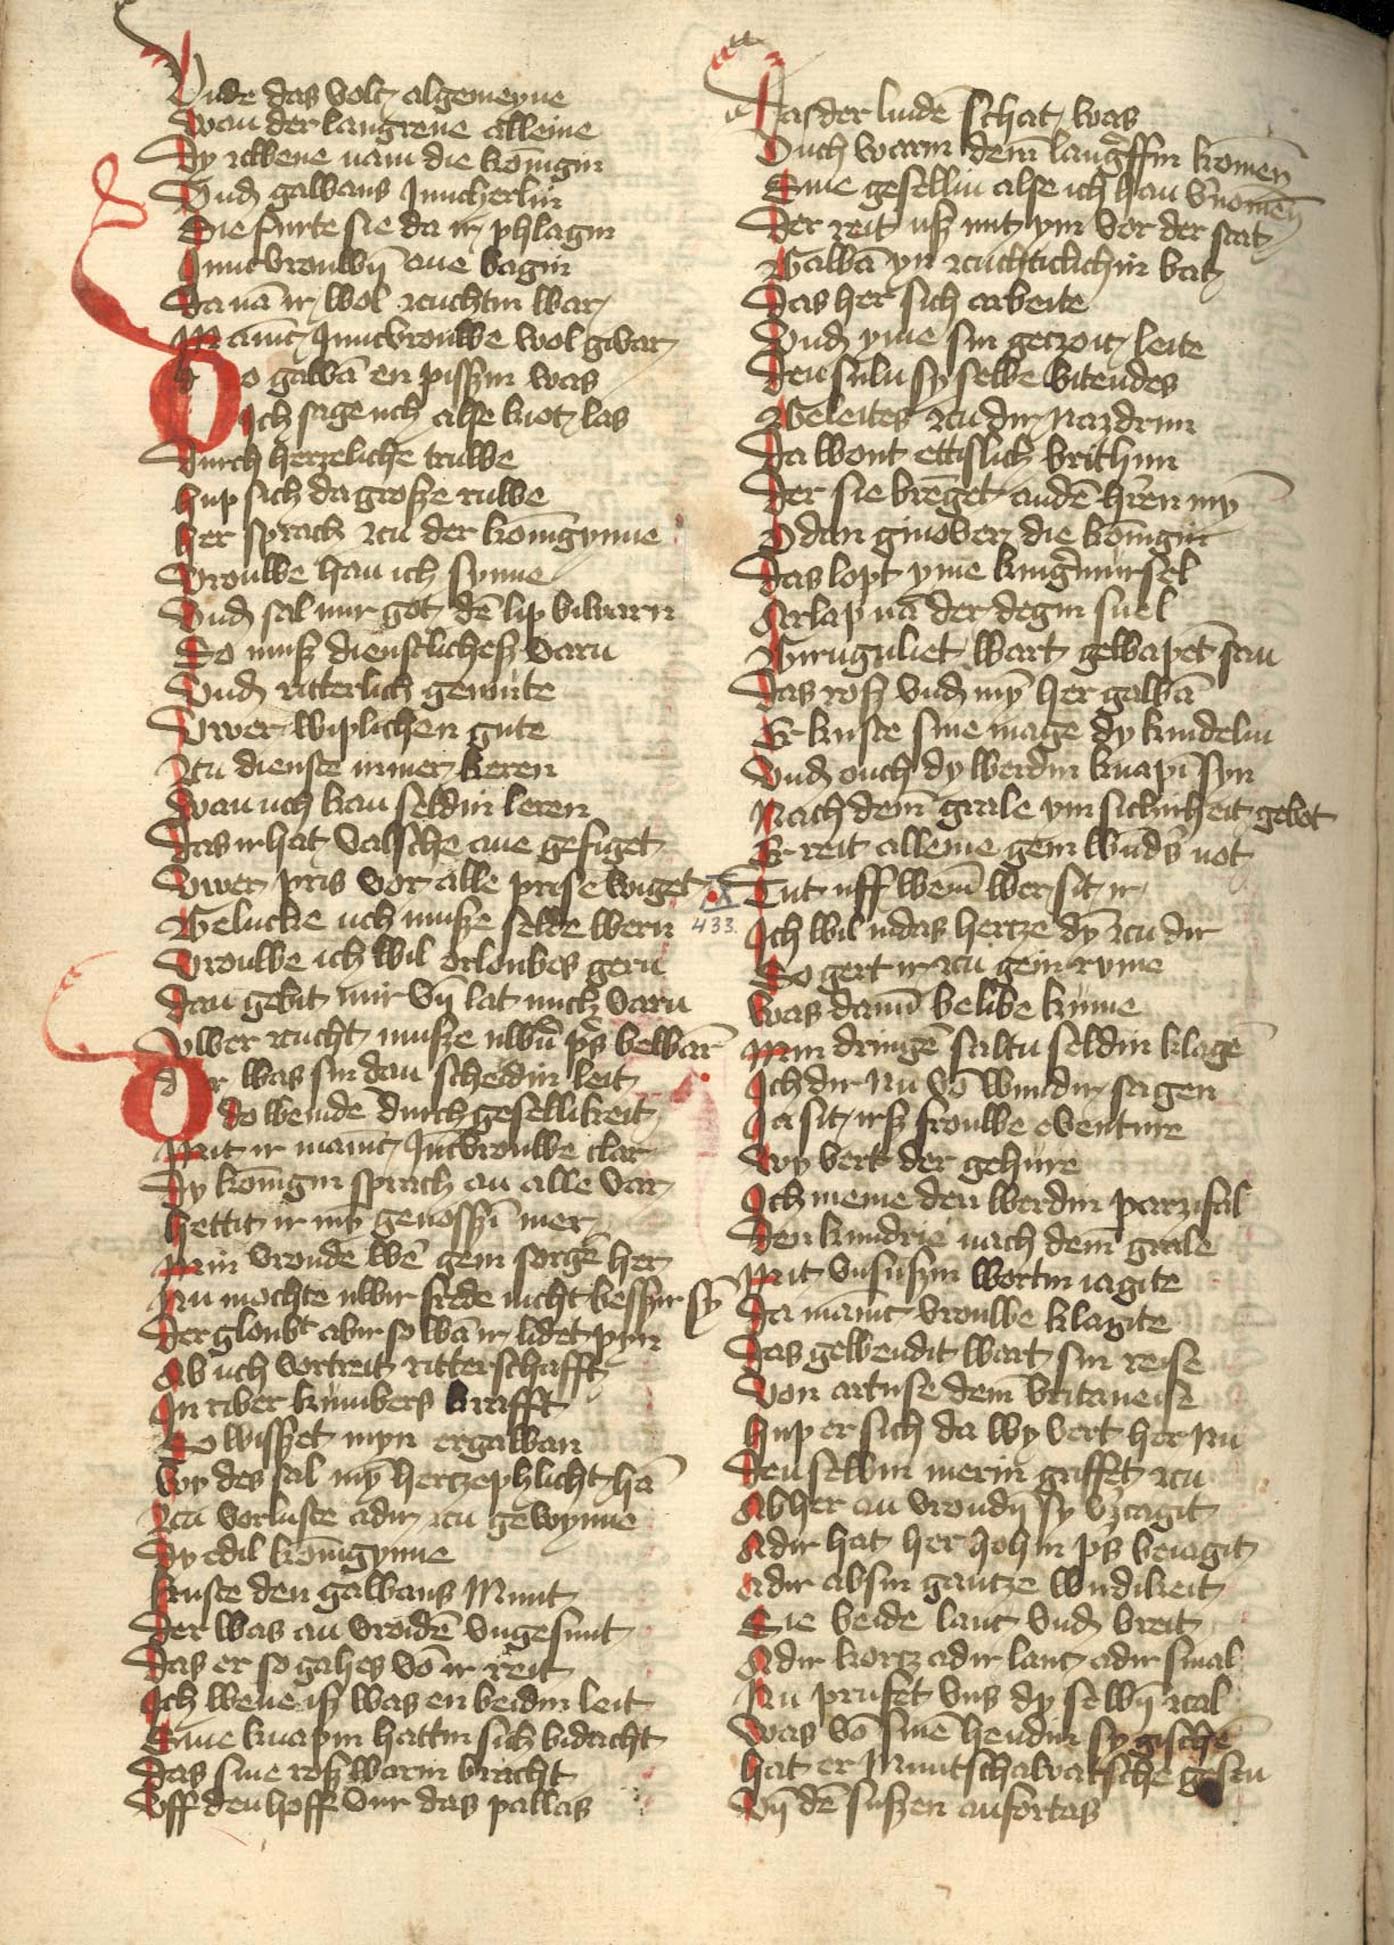 Vnde das volc algemeyne
wan der langreue alleine
Dy rwene nam die konīgin
Vnd gawans Juncherlin
Die furte sie da ir phlagin
Juncvrouwen ane bagin
Da nā ir wol zcuchtin war
Manic Juncvrouwe wol gwar
Do gawā en pisszin was
Ich sage uch alse kiot las
Durch herzeliche truwe
hup sich da grosze ruwe
her sprach zcu der konīgynne
Vrouwe han ich synne
Vnd sal mir got dē lip biwarn
So musz dienstlichesz varn
Vnd ritterlich gemute
Vwer wiplichen gute
Zcu dienste immer keren
wan uch kan seldin leren
Das ir hat valsche ane gesiget
Vwer pris vor alle prise wiget
Gelucke uch musze selde wern
Vrouwe ich wil orloubes gern
Dan gebit mir vn̄ lat mich varn
Vwer zcucht musze uwern p̄s bewarn
Ir was sin dan scheidin leit
do weinde durch gesellikeit
Mit ir manic Jūcvrouwe clar
Dy konīgin sprach an alle var
hettit ir mȳ genosszin mer
Min vroude wē gein sorgē her
Nu mochte uwir frede nicht besszir sȳ
Der gloubt abir so wā ir lidet pyn
Ab uch vortreit ritterschafft
In riber kummbers krafft
So wisszet myn er gawan
wy des sal mȳ hertze phlicht hā
Zcu vorluste adir zcu gewynne
Dy edil konīgynne
kuste den gawans Munt
Der was an vroidē vngesunt
Das er so gahes vō ir reit
Ich wene isz was en beidin leit
Sine knapin hattin sich bidacht
Das sine rosz warin bracht
Vff den hoff vur das pallas
Da der lindē schat was
Ouch warin dem langreffin komen
Sine gesellin alse ich han vernomen
Der reit usz mit ym vor der stat
Gawā yn zcuchticlichin bat
Das her sich arbeite
Vnd yme sin gezoit leite
Den suln sy selbe bitendes
Geleites zcu dir Nazdrun
Da wont ettislich brithun
Der sie brēget an dē hrēn mȳ
Odan ginover die konīgin
Das lopt yme kingrimursel
Orlap nā der degin snel
Gringuliet wart gewapēt san
Das rosz vnd mȳ her gawā
Er kuste sine mage dy kindelin
Vnd ouch dy werdin knapī syn
Nach dem grale ym sichirheit gebot
Er reit alleine gein wūders not
Tut uff wem wer sit ir
433.
Ich wil indas hertze dȳ zcu dir
So gert ir zcu gein ryme
was dann belibe kume
Min dringē saltu seldin klagē
Ich dir Nu vō wundir sagen
Ja sit irsz frouwe oventure
wy vert der gehure
Ich meine den werdin parzifal
Den kundrie nach dem grale
Mit vnsuszin wortin iagite
Da manic vrouwe klagite
Das gewendit wart sin reise
Von artuse dem britaneise
hup er sich da wy vert her Nu
Den selbin merin griffet zcu
Ab her an vroudin sy vzcagit
Adir hat her hohin p̄s beiagit
Adir ab sin gantze wirdikeit
Sie beide lanc vnd breit
Adir kortz adir lanc adir smal
Nu prufet vns dy selbin zcal
was vō sinē hendin sy gischē
hat er Muntschalvatsche gesen
Vn̄ dē suszen anfortas